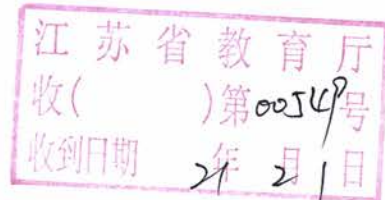 江苏省教育厅
收( )第00549号
收到日期 21年2月1日